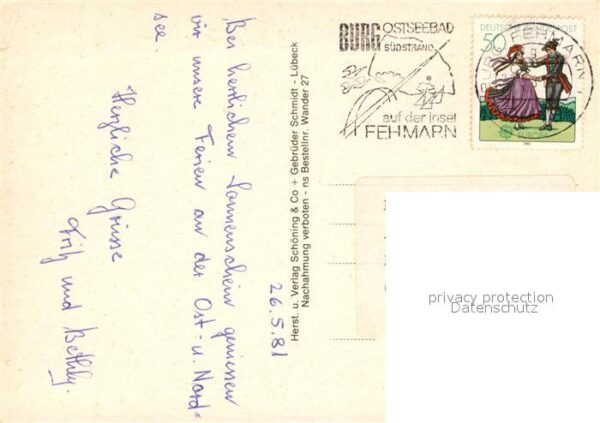 26.5.81
Bei herrlichem Sonnenschein geniessen
wir unsere Ferien an der Ost- u. Nord=
see.
Herzliche Grüsse
Fritz und Bethly.
Herst. u. Verlag Schöning & Co + Gebrüder Schmidt - Lübeck
Nachahmung verboten - ns Bestellnr. Wander 27
BURG OSTSEEBAD
SÜDSTRAND
auf der Insel
FEHMARN
DEUTSCHE BUNDESPOST
50
FEHMARN 1
privacy protection
Datenschutz